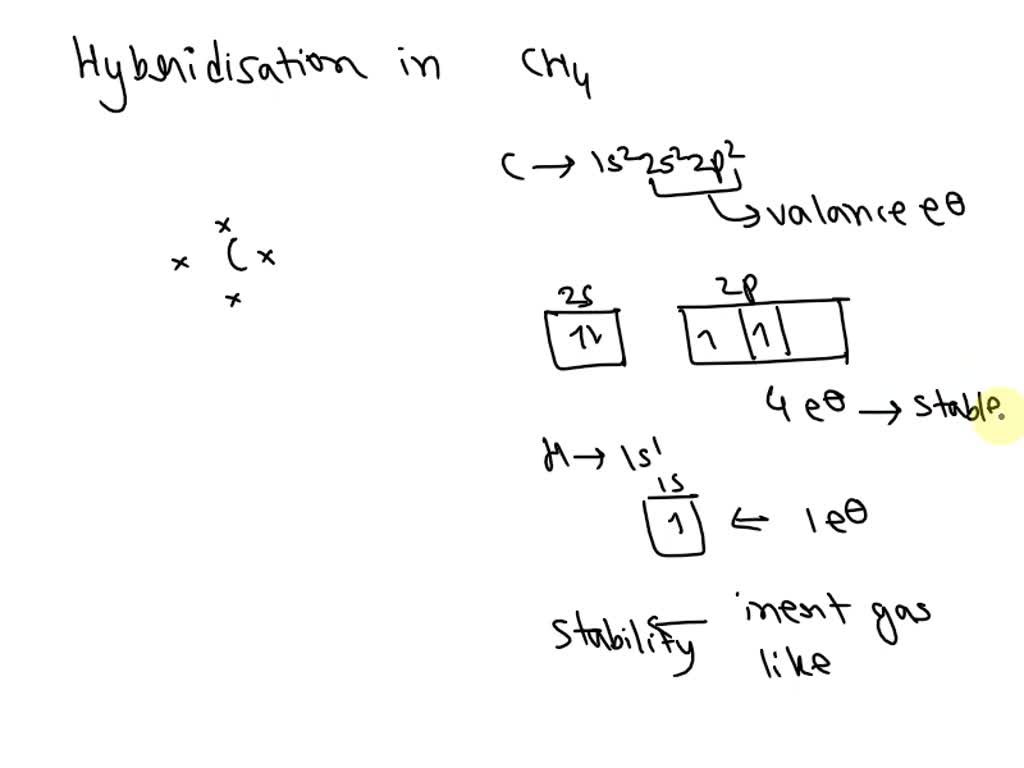 Hybridisation in CH₄
C → 1s²2s²2p²
valance e⊖
x
x C x
x
2s 2p
1↓ 1 1
4 e⊖ → stable.
H → 1s¹
1s
1 ← 1 e⊖
Stability inert gas
like